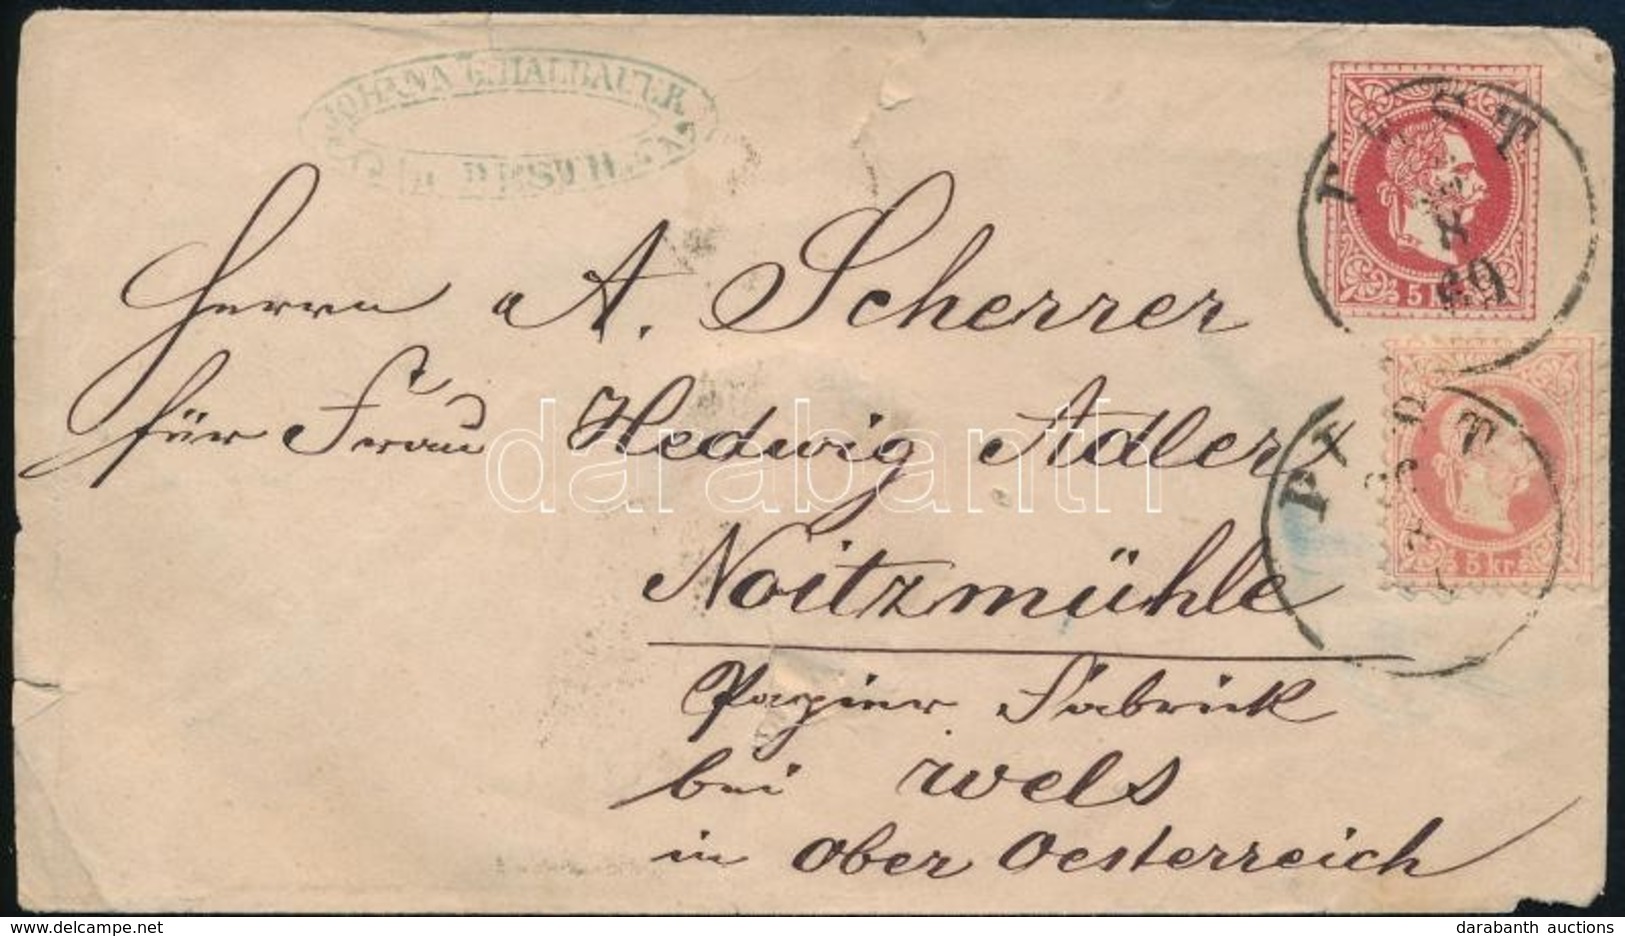 JOHANN G. HALBAUER
IN PESTH.
PEST
8
69
5 kr.
Herrn A. Scherrer
für Frau Hedwig Adler
darabanth
PEST
5 kr.
Noitzmühle
Papier Fabrick
bei Wels
in Ober Oesterreich
darabanth auctions